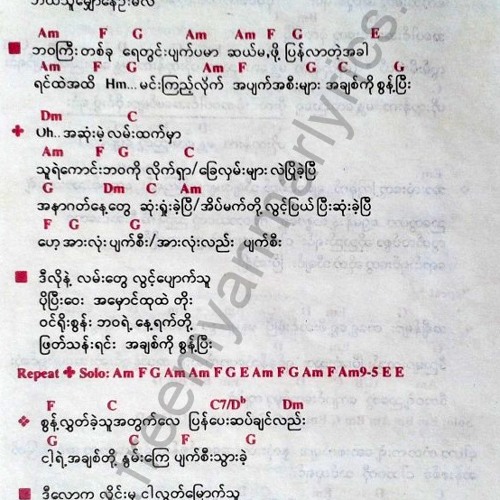 Am F G Am Am F G E
ဘဝကြီးတစ်ခု ရေတွင်းပျက်ပမာ ဆယ်မ,ဖို့ ပြန်လာတဲ့အခါ
Am F G Am F G C G
ရင်ထဲအထိ Hm... မင်းကြည့်လိုက် အပျက်အစီးများ အချစ်ကိုစွန့်ပြီး
Dm C
Uh.. အဆုံးမဲ့ လမ်းထက်မှာ
Am F G C
သူရဲကောင်းဘဝကို လိုက်ရှာ/ခြေလှမ်းများလဲပြိုခဲ့ပြီ
G Dm C Am
အနာဂတ်နေ့တွေ ဆုံးရှုံးခဲ့ပြီ/အိပ်မက်တို့လွင့်ပြယ်ပြီးဆုံးခဲ့ပြီ
F G G
ဟေ့အားလုံးပျက်စီး/အားလုံးလည်း ပျက်စီး
ဒီလိုနဲ့ လမ်းတွေ လွင့်ပျောက်သူ
ပိုပြီးဝေး အမှောင်ထုထဲ တိုး
ဝင်ရိုးစွန်း ဘဝရဲ့နေ့ရက်တို့
ဖြတ်သန်းရင်း အချစ်ကိုစွန့်ပြီး
Repeat ✚ Solo: Am F G Am Am F G E Am F G Am F Am9-5 E E
F C C7/Db Dm
စွန့်လွှတ်ခဲ့သူအတွက်လေ ပြန်ပေးဆပ်ချင်လည်း
G C F G
ငါ့ရဲ့အချစ်တို့ နွမ်းကြေ ပျက်စီးသွားခဲ့